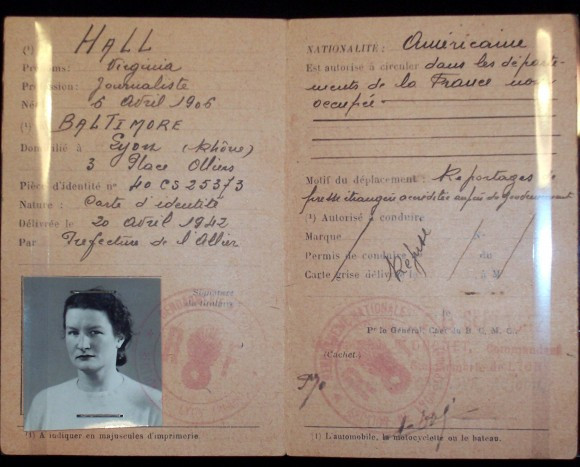 (1) HALL
Prénoms: Virginia
Profession: Journaliste
Né 6 Avril 1906
(1) BALTIMORE
Domicilié à Lyon (Rhône)
3 Place Ollier
Pièce d'identité n° 40 CS 25373
Nature: Carte d'identité
Délivrée le 20 avril 1942
Par Préfecture de l'Allier
Signature
du titulaire
(1) A indiquer en majuscules d'imprimerie.
NATIONALITÉ: Américaine
Est autorisé à circuler dans les départe-
ments de la France non
occupée
Motif du déplacement: Reportages de
presse étrangère accréditée auprès du gouvernement
(1) Autorisé à conduire
Marque N°
Permis de conduire du
Carte grise délivrée à M
Refusé
Pr le Général, Chef du
(Cachet)
(1) L'automobile, la motocyclette ou le bateau.